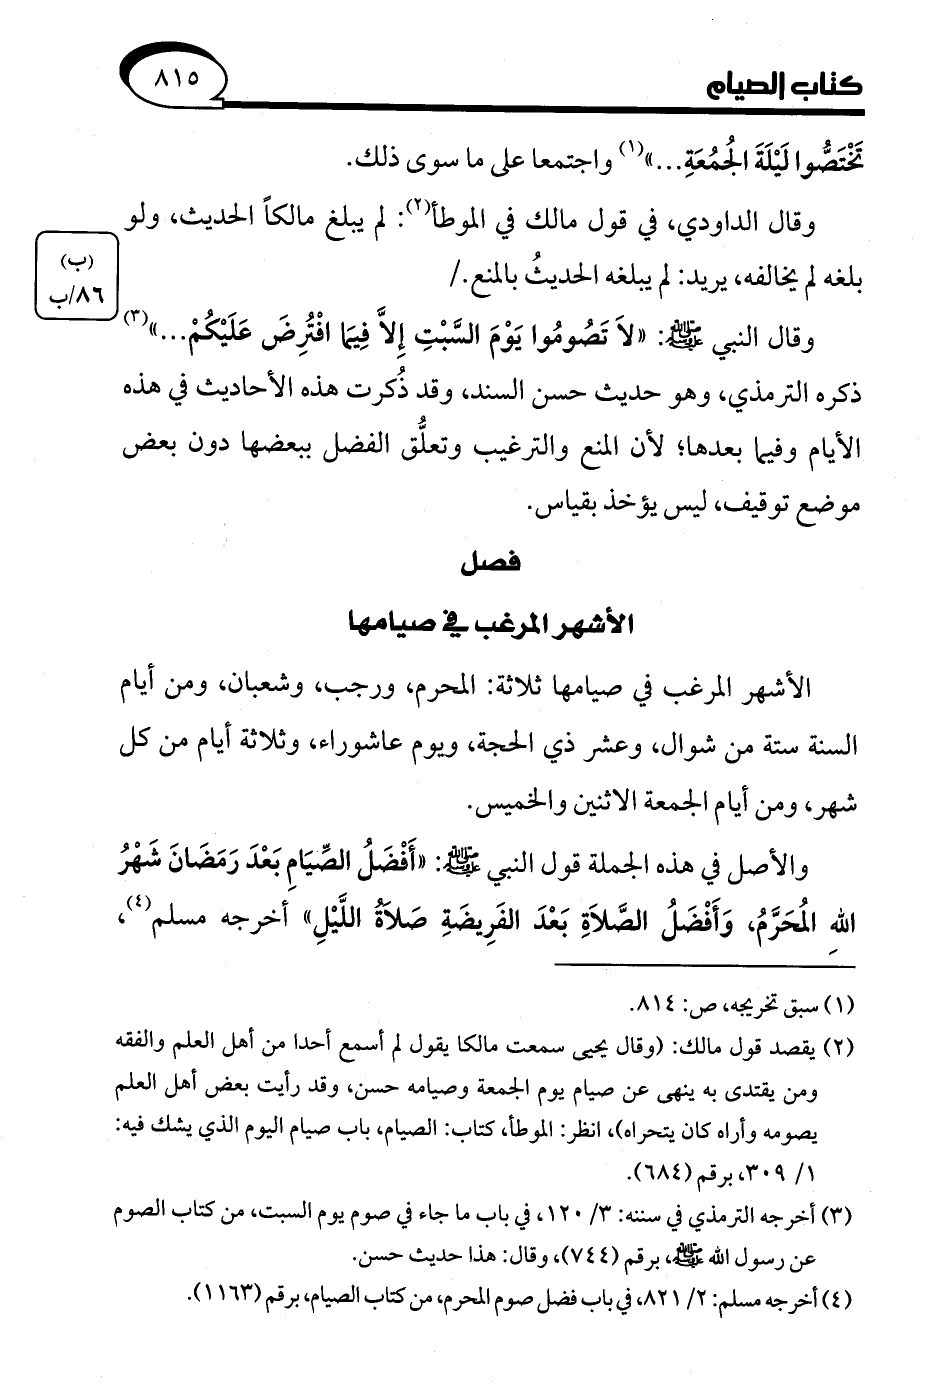 كتاب الصيام
٨١٥
تَخْتَصُّوا لَيْلَةَ الجُمُعَةِ...»(١) واجتمعا على ما سوى ذلك.
وقال الداودي، في قول مالك في الموطأ(٢): لم يبلغ مالكاً الحديث، ولو
بلغه لم يخالفه، يريد: لم يبلغه الحديثُ بالمنع./
(ب)
٨٦/ب
وقال النبي ﷺ: «لاَ تَصُومُوا يَوْمَ السَّبْتِ إِلاَّ فِيمَا افْتُرِضَ عَلَيْكُمْ...»(٣)
ذكره الترمذي، وهو حديث حسن السند، وقد ذُكرت هذه الأحاديث في هذه
الأيام وفيما بعدها؛ لأن المنع والترغيب وتعلُّق الفضل ببعضها دون بعض
موضع توقيف، ليس يؤخذ بقياس.
فصل
الأشهر المرغب في صيامها
الأشهر المرغب في صيامها ثلاثة: المحرم، ورجب، وشعبان، ومن أيام
السنة ستة من شوال، وعشر ذي الحجة، ويوم عاشوراء، وثلاثة أيام من كل
شهر، ومن أيام الجمعة الاثنين والخميس.
والأصل في هذه الجملة قول النبي ﷺ: «أَفْضَلُ الصِّيَامِ بَعْدَ رَمَضَانَ شَهْرُ
اللهِ المُحَرَّمُ، وَأَفْضَلُ الصَّلاَةِ بَعْدَ الفَرِيضَةِ صَلاَةُ اللَّيْلِ» أخرجه مسلم(٤)،
(١) سبق تخريجه، ص: ٨١٤.
(٢) يقصد قول مالك: (وقال يحيى سمعت مالكا يقول لم أسمع أحدا من أهل العلم والفقه
ومن يقتدى به ينهى عن صيام يوم الجمعة وصيامه حسن، وقد رأيت بعض أهل العلم
يصومه وأراه كان يتحراه)، انظر: الموطأ، كتاب: الصيام، باب صيام اليوم الذي يشك فيه:
١/ ٣٠٩، برقم (٦٨٤).
(٣) أخرجه الترمذي في سننه: ٣/ ١٢٠، في باب ما جاء في صوم يوم السبت، من كتاب الصوم
عن رسول الله ﷺ، برقم (٧٤٤)، وقال: هذا حديث حسن.
(٤) أخرجه مسلم: ٢/ ٨٢١، في باب فضل صوم المحرم، من كتاب الصيام، برقم (١١٦٣).